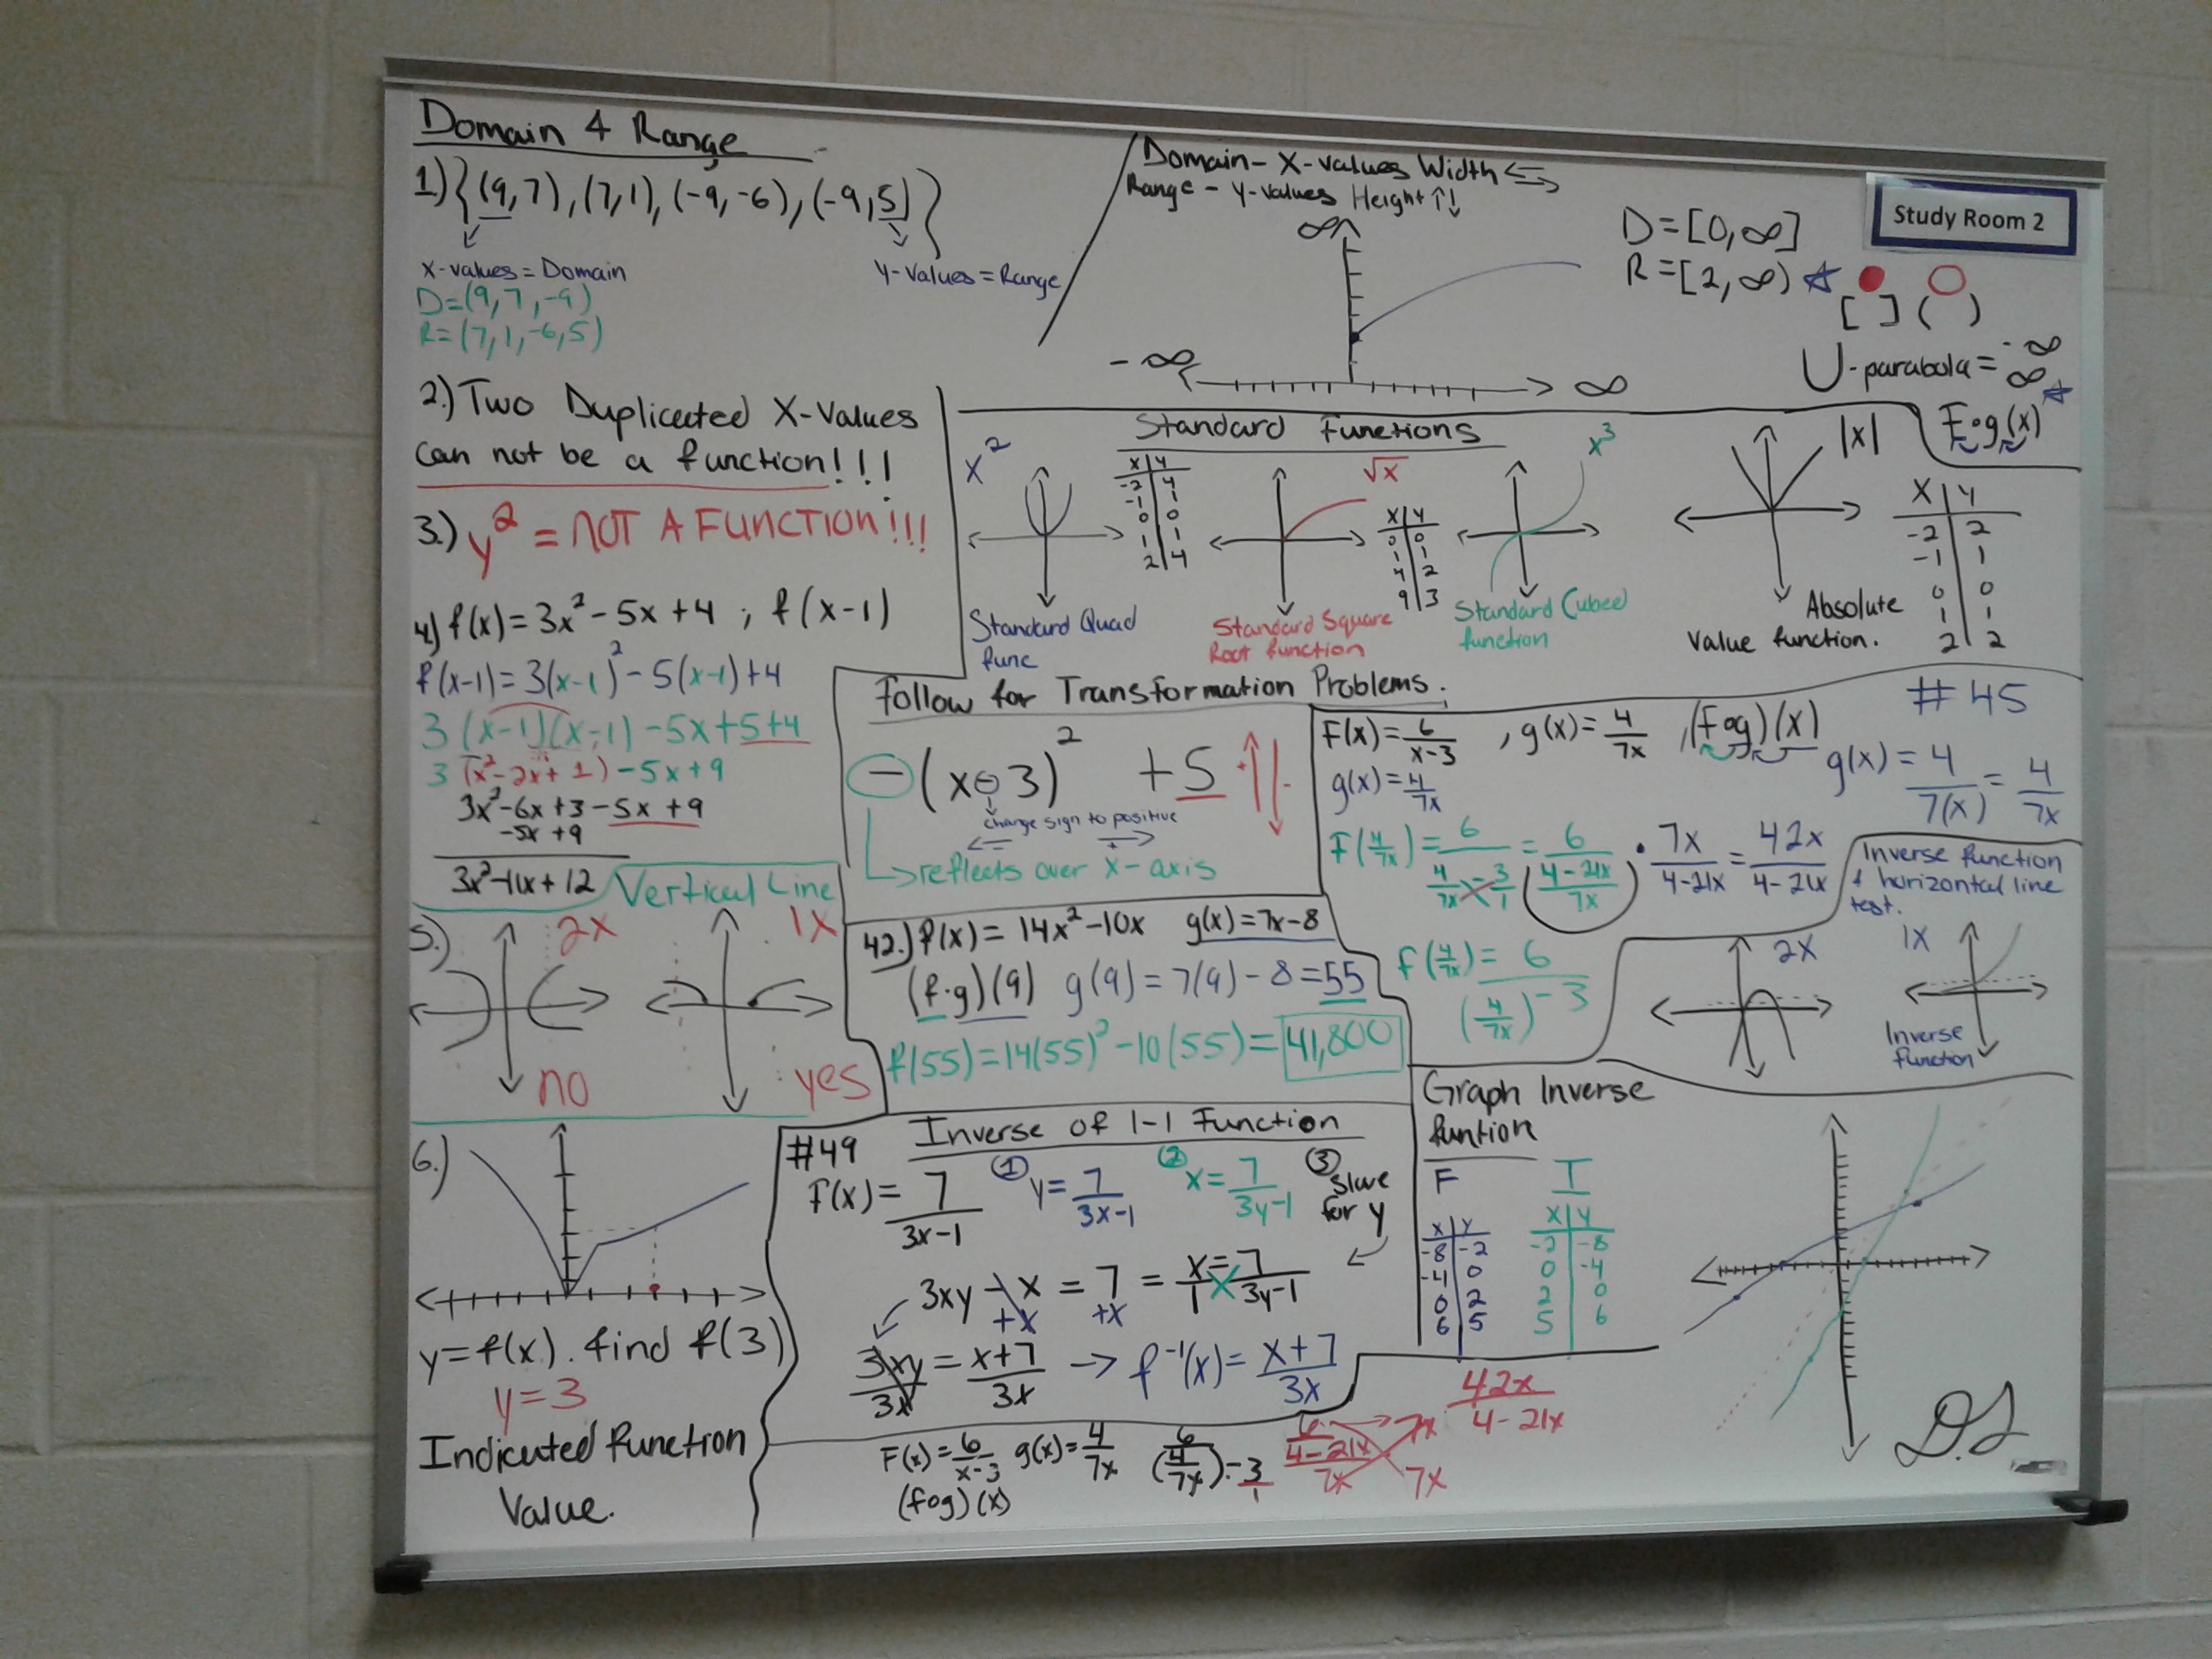 Domain & Range
1) {(9,7), (7,1), (-9,-6), (-9,5)}
X-values = Domain
Y-values = Range
D=(9,7,-9)
R=(7,1,-6,5)
Domain - X-values Width
Range - Y-values Height ↑↓
∞
-∞
∞
D=[0,∞]
R=[2,∞) ☆
[ ] ( )
U-parabola = -∞
∞
Study Room 2
2.) Two Duplicated X-Values
Can not be a function!!!
3.) y² = NOT A FUNCTION!!!
4) f(x)=3x²-5x+4 ; f(x-1)
f(x-1)=3(x-1)²-5(x-1)+4
3(x-1)(x-1)-5x+5+4
3(x²-2x+1)-5x+9
3x²-6x+3-5x+9
-5x+9
3x²-11x+12
Standard Functions
x²
x | y
-2 | 4
-1 | 1
0 | 0
1 | 1
2 | 4
Standard Quad
func
√x
x | y
0 | 0
1 | 1
4 | 2
9 | 3
Standard Square
Root function
x³
Standard Cubed
function
|x|
Absolute
Value function.
x | y
-2 | 2
-1 | 1
0 | 0
1 | 1
2 | 2
Fog(x)
Follow for Transformation Problems.
-(x-3)² +5
+ -
change sign to positive
- +
reflects over x-axis
#45
F(x)=6/(x-3) , g(x)=4/7x , (Fog)(x)
g(x)=4/7x
g(x)=4/7(x)=4/7x
F(4/7x)=6/(4/7x-3/1)=6/((4-21x)/7x)·7x/(4-21x)=42x/(4-21x)
f(4/7x)=6/((4/7x)-3)
Inverse function
& horizontal line
test.
2X
1X
Inverse
function
Vertical Line
5.)
2X
1X
no
yes
42.) f(x)=14x²-10x g(x)=7x-8
(f·g)(9) g(9)=7(9)-8=55
f(55)=14(55)²-10(55)=41,800
6.)
y=f(x). find f(3)
y=3
Indicated function
Value.
#49
Inverse of 1-1 Function
F(x)=7/(3x-1)
① y=7/(3x-1)
② x=7/(3y-1)
③ Slove
for y
3xy-x=7=x/1=7/(3y-1)
+x +x
3xy/3x=(x+7)/3x → f⁻¹(x)=(x+7)/3x
Graph Inverse
funtion
F
x | y
-8 | -2
-4 | 0
0 | 2
6 | 5
I
x | y
-2 | -8
0 | -4
2 | 0
5 | 6
F(x)=6/(x-3) g(x)=4/7x
(fog)(x)
6/((4/7x)-3/1)
6/((4-21x)/7x) 7x
7x
42x/(4-21x)